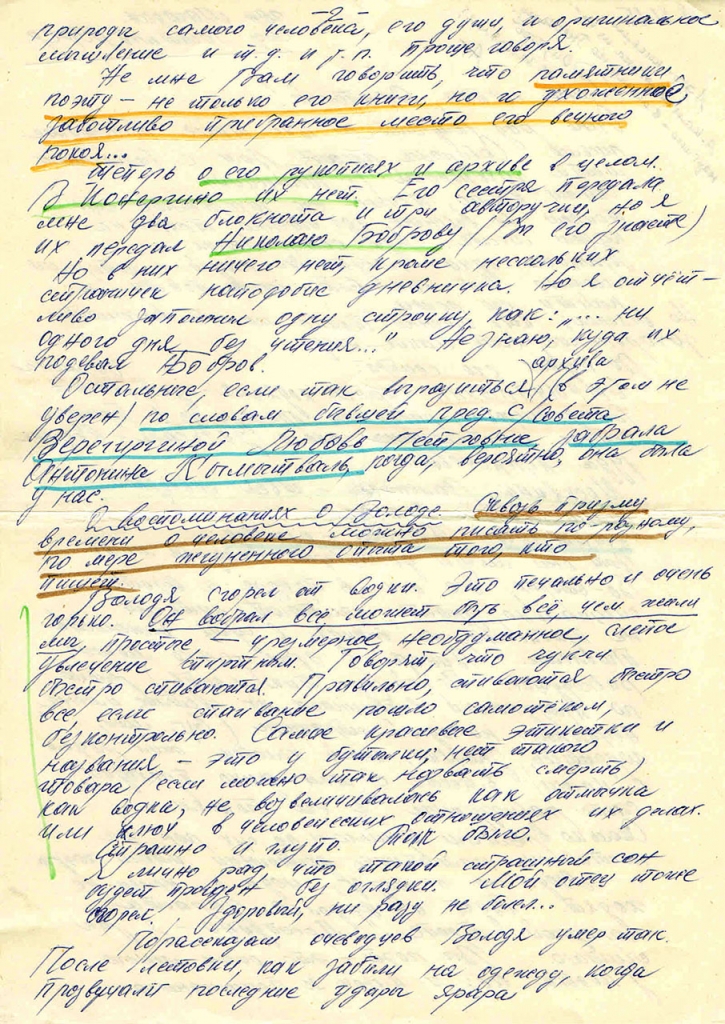 -2-
природы самого человека, его души, и оригинальное
мышление и т.д. и т.п. проще говоря.
Не мне Вам говорить, что памятники
поэту – не только его книги, но и ухоженное
заботливо прибранное место его вечного
покоя...
Теперь о его рукописях и архиве в целом.
В Конергино их нет. Его сестра передала
мне два блокнота и три авторучки, но я
их передал Николаю Боброву (Вы его знаете)
Но в них ничего нет, кроме нескольких
страничек наподобие дневничка. Но я отчёт-
ливо запомнил одну строчку, как: „... ни
одного дня без чтения..." Не знаю, куда их
подевал Бобров.
Остальное, если так выразиться, архива (в этом не
уверен) по словам бывшей пред. с/совета
Верегиргиной Любовь Петровны, забрала
Антонина Кымытваль, когда, вероятно, она была
у нас.
О воспоминаниях о Володе. Сквозь призму
времени о человеке можно писать по разному,
по мере жизненного опыта того, кто
пишет.
Володя сгорел от водки. Это печально и очень
горько. Он вобрал все, может быть всё, чем жили
мы, простые – чрезмерное, необдуманное, слепое
увлечение спиртным. Говорят, что чукчи
быстро спиваются. Правильно, спиваются быстро
все, если спаивание пошло самотёком,
безконтрольно. Самое красивое этикетки и
названия – это у бутылки; нет такого
товара (если можно так назвать смерть)
как водка, не возвеличивалась как отмычка
или ключ в человеческих отношениях их делах.
Страшно и глупо. Так было.
Я лично рад, что такой страшный сон
будет пройден без оглядки. Мой отец тоже
сгорел. Здоровый, ни разу не болел...
По рассказам очевидцев Володя умер так.
После летовки, как забили на одежду, когда
прозвучали последние удары ярара